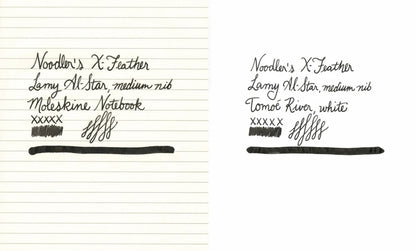 Noodler's X-Feather
Lamy Al-Star, medium nib
Moleskine Notebook
XXXXX
Noodler's X-Feather
Lamy Al-Star, medium nib
Tomoé River, white
XXXXX